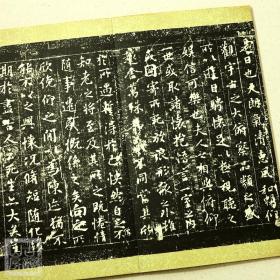 是日也天朗氣清惠風和暢仰
觀宇宙之大俯察品類之盛
所以遊目騁懷足以極視聽之
娛信可樂也夫人之相與俯仰
一世或取諸懷抱悟言一室之內
或因寄所託放浪形骸之外雖
趣舍萬殊靜躁不同當其欣
於所遇暫得於己快然自足不
知老之將至及其所之既惓情
隨事遷感慨係之矣向之所
欣俛仰之間以為陳迹猶不
能不以之興懷況脩短隨化終
期於盡古人云死生亦大矣